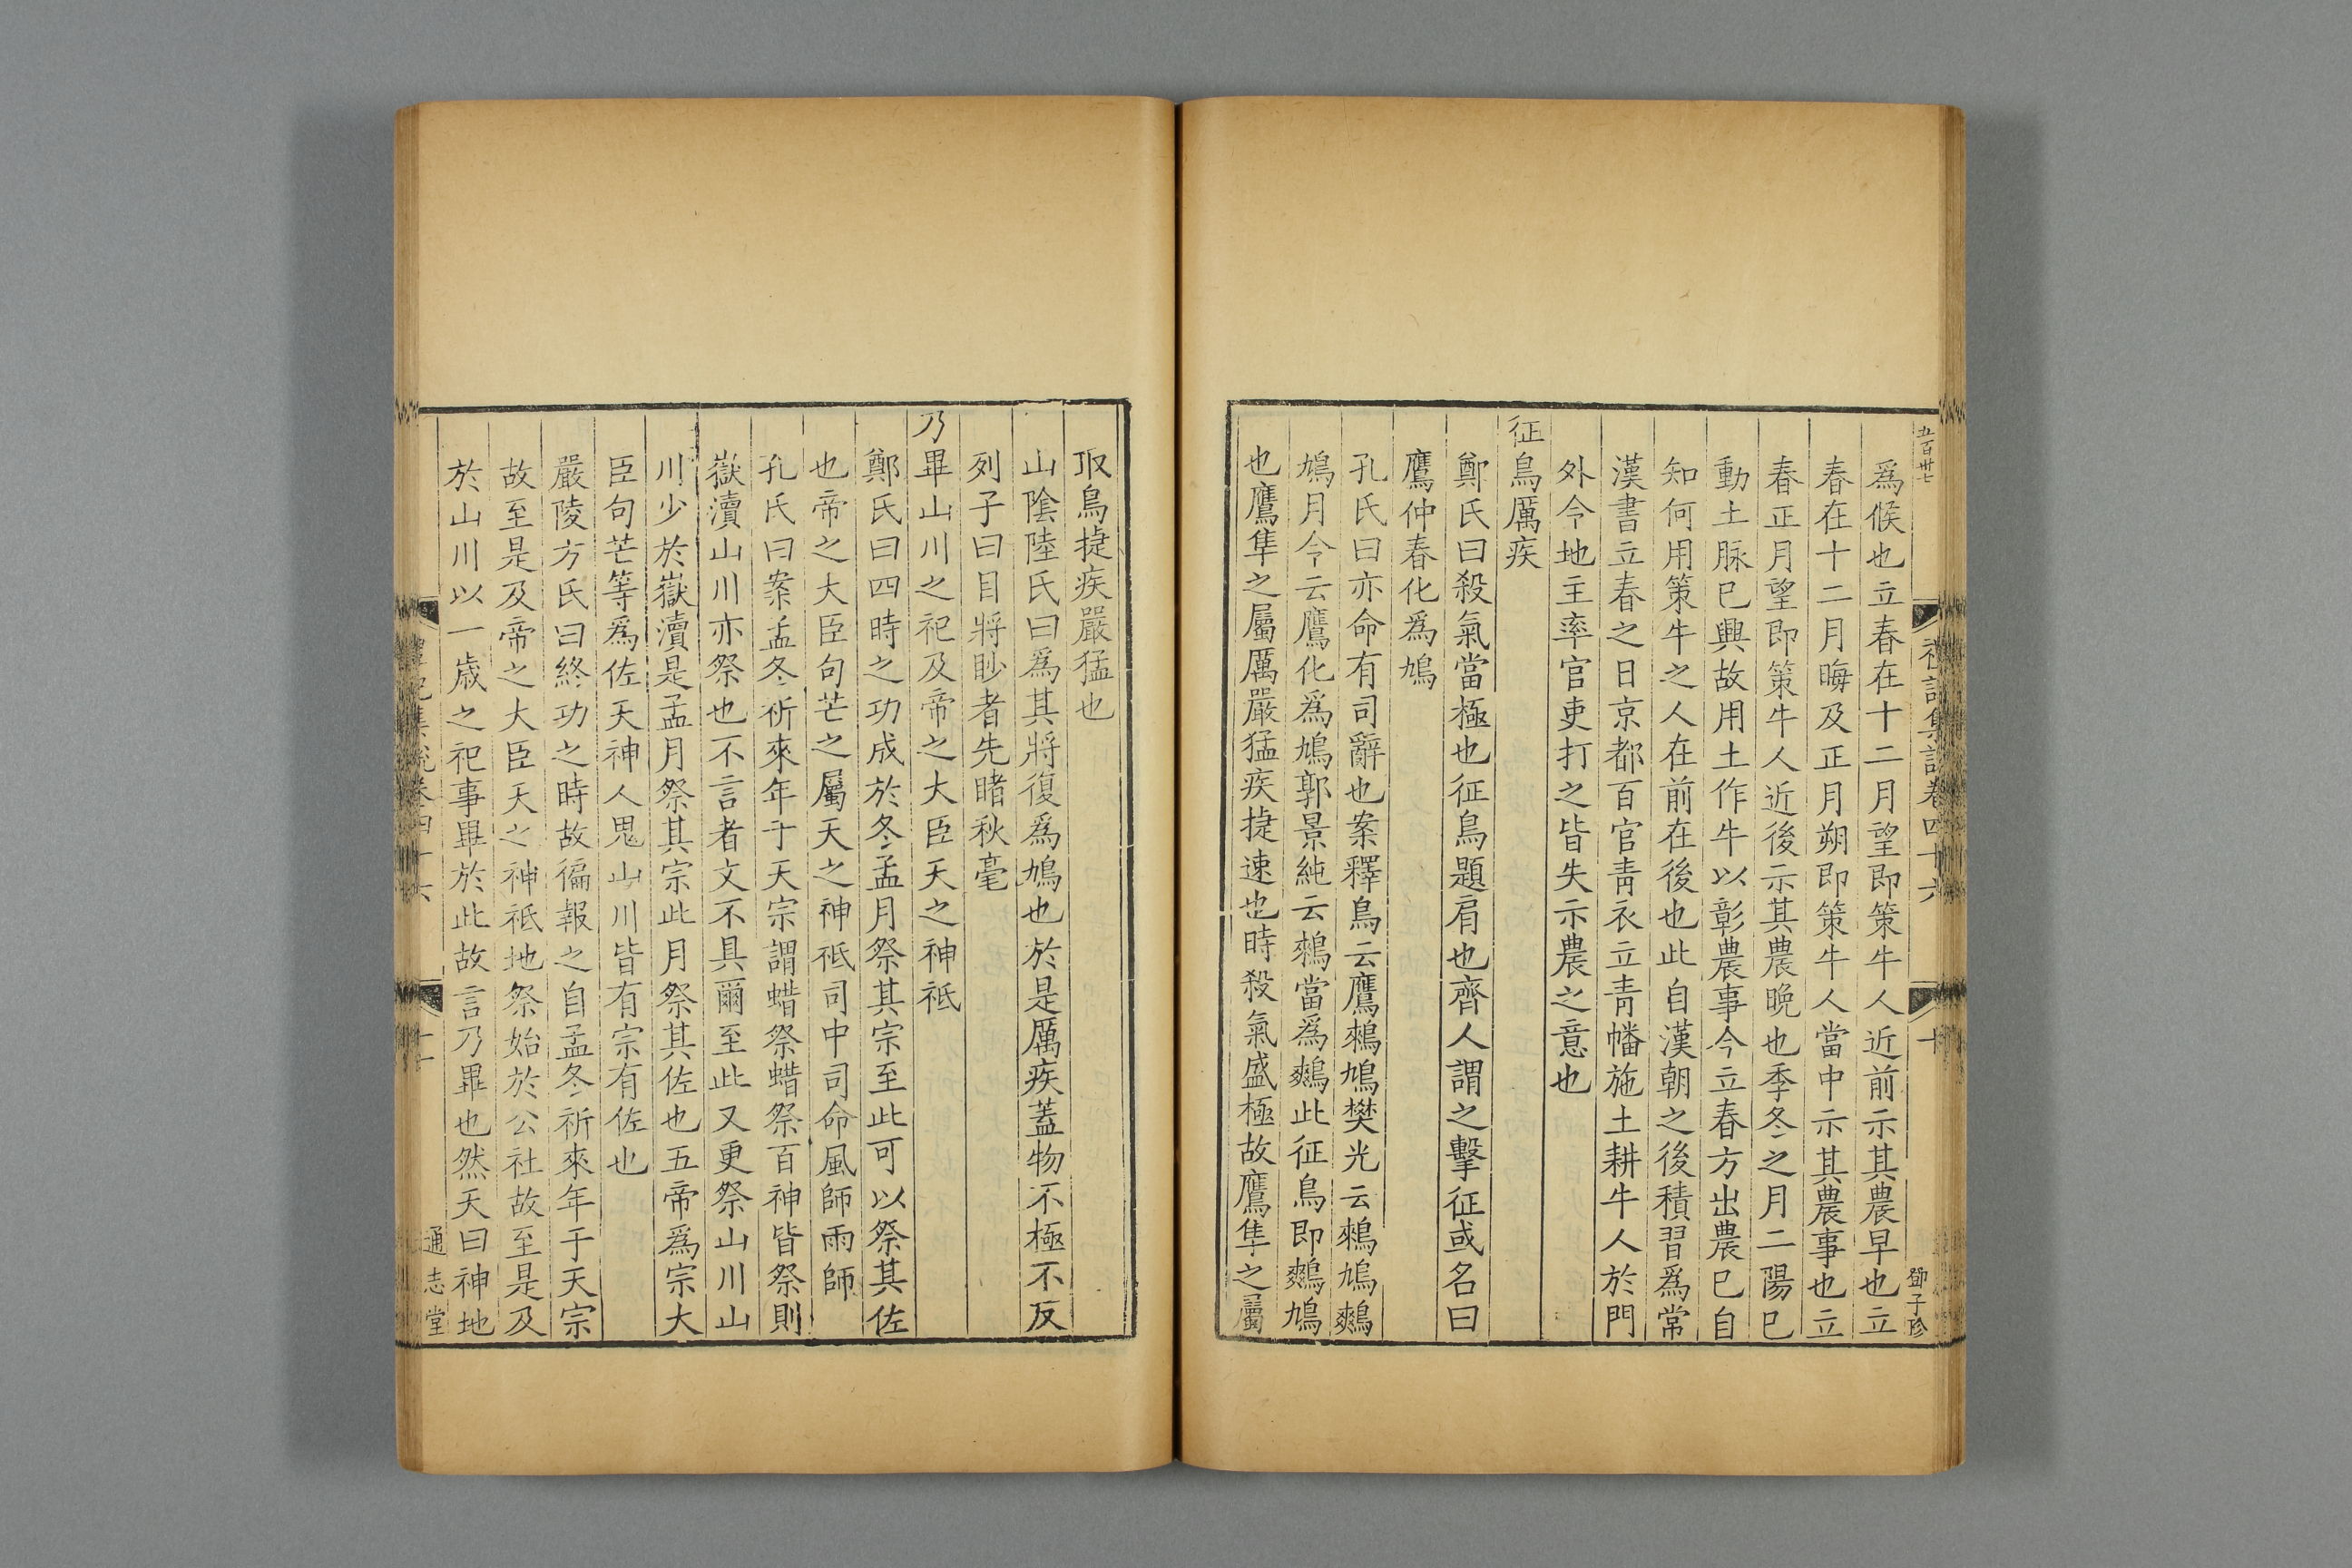 五百卅七
禮記集說卷四十六
十
鄧子珍
為候也立春在十二月望即策牛人近前示其農早也立
春在十二月晦及正月朔即策牛人當中示其農事也立
春正月望即策牛人近後示其農晚也季冬之月二陽已
動土脉已興故用土作牛以彰農事今立春方出農已自
知何用策牛之人在前在後也此自漢朝之後積習為常
漢書立春之日京都百官青衣立青幡施土耕牛人於門
外今地主率官吏打之皆失示農之意也
征鳥厲疾
鄭氏曰殺氣當極也征鳥題肩也齊人謂之擊征或名曰
鷹仲春化為鳩
孔氏曰亦命有司辭也案釋鳥云鷹鶆鳩樊光云鶆鳩鷞
鳩月令云鷹化為鳩郭景純云鶆當為鷞此征鳥即鷞鳩
也鷹隼之屬厲嚴猛疾捷速也時殺氣盛極故鷹隼之屬
取鳥捷疾嚴猛也
山陰陸氏曰為其將復為鳩也於是厲疾蓋物不極不反
列子曰目將眇者先睹秋毫
乃畢山川之祀及帝之大臣天之神祇
鄭氏曰四時之功成於冬孟月祭其宗至此可以祭其佐
也帝之大臣句芒之屬天之神祇司中司命風師雨師
孔氏曰案孟冬祈來年于天宗謂蜡祭蜡祭百神皆祭則
嶽瀆山川亦祭也不言者文不具爾至此又更祭山川山
川少於嶽瀆是孟月祭其宗此月祭其佐也五帝為宗大
臣句芒等為佐天神人鬼山川皆有宗有佐也
嚴陵方氏曰終功之時故徧報之自孟冬祈來年于天宗
故至是及帝之大臣天之神祇地祭始於公社故至是及
於山川以一歲之祀事畢於此故言乃畢也然天曰神地
禮記集說卷四十六
十一
通志堂